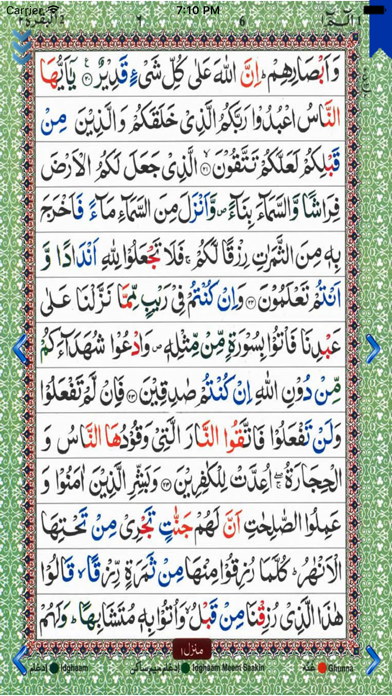 Carrier 7:10 PM
الٓمّٓ ١ ٦ ١ البقرة ٢
وَاَبْصَارِهِمْ ؕ اِنَّ اللّٰهَ عَلٰى كُلِّ شَیْءٍ قَدِیْرٌ ۟ ۲۰ یٰۤاَیُّهَا
النَّاسُ اعْبُدُوْا رَبَّكُمُ الَّذِیْ خَلَقَكُمْ وَالَّذِیْنَ مِنْ
قَبْلِكُمْ لَعَلَّكُمْ تَتَّقُوْنَ ۟ ۲۱ الَّذِیْ جَعَلَ لَكُمُ الْاَرْضَ
فِرَاشًا وَّالسَّمَآءَ بِنَآءً ۪ وَّاَنْزَلَ مِنَ السَّمَآءِ مَآءً فَاَخْرَجَ
بِهٖ مِنَ الثَّمَرٰتِ رِزْقًا لَّكُمْ ۚ فَلَا تَجْعَلُوْا لِلّٰهِ اَنْدَادًا وَّ
اَنْتُمْ تَعْلَمُوْنَ ۟ ۲۲ وَاِنْ كُنْتُمْ فِیْ رَیْبٍ مِّمَّا نَزَّلْنَا عَلٰى
عَبْدِنَا فَاْتُوْا بِسُوْرَةٍ مِّنْ مِّثْلِهٖ ۪ وَادْعُوْا شُهَدَآءَكُمْ
مِّنْ دُوْنِ اللّٰهِ اِنْ كُنْتُمْ صٰدِقِیْنَ ۟ ۲۳ فَاِنْ لَّمْ تَفْعَلُوْا
وَلَنْ تَفْعَلُوْا فَاتَّقُوا النَّارَ الَّتِیْ وَقُوْدُهَا النَّاسُ وَ
الْحِجَارَةُ ۖۚ اُعِدَّتْ لِلْكٰفِرِیْنَ ۟ ۲۴ وَبَشِّرِ الَّذِیْنَ اٰمَنُوْا وَ
عَمِلُوا الصّٰلِحٰتِ اَنَّ لَهُمْ جَنّٰتٍ تَجْرِیْ مِنْ تَحْتِهَا
الْاَنْهٰرُ ؕ كُلَّمَا رُزِقُوْا مِنْهَا مِنْ ثَمَرَةٍ رِّزْقًا ۙ قَالُوْا
هٰذَا الَّذِیْ رُزِقْنَا مِنْ قَبْلُ ۙ وَاُتُوْا بِهٖ مُتَشَابِهًا ؕ وَلَهُمْ
منزل ۱
ادغام Idghaam ادغام میم ساکن Idghaam Meem Saakin غنّه Ghunna